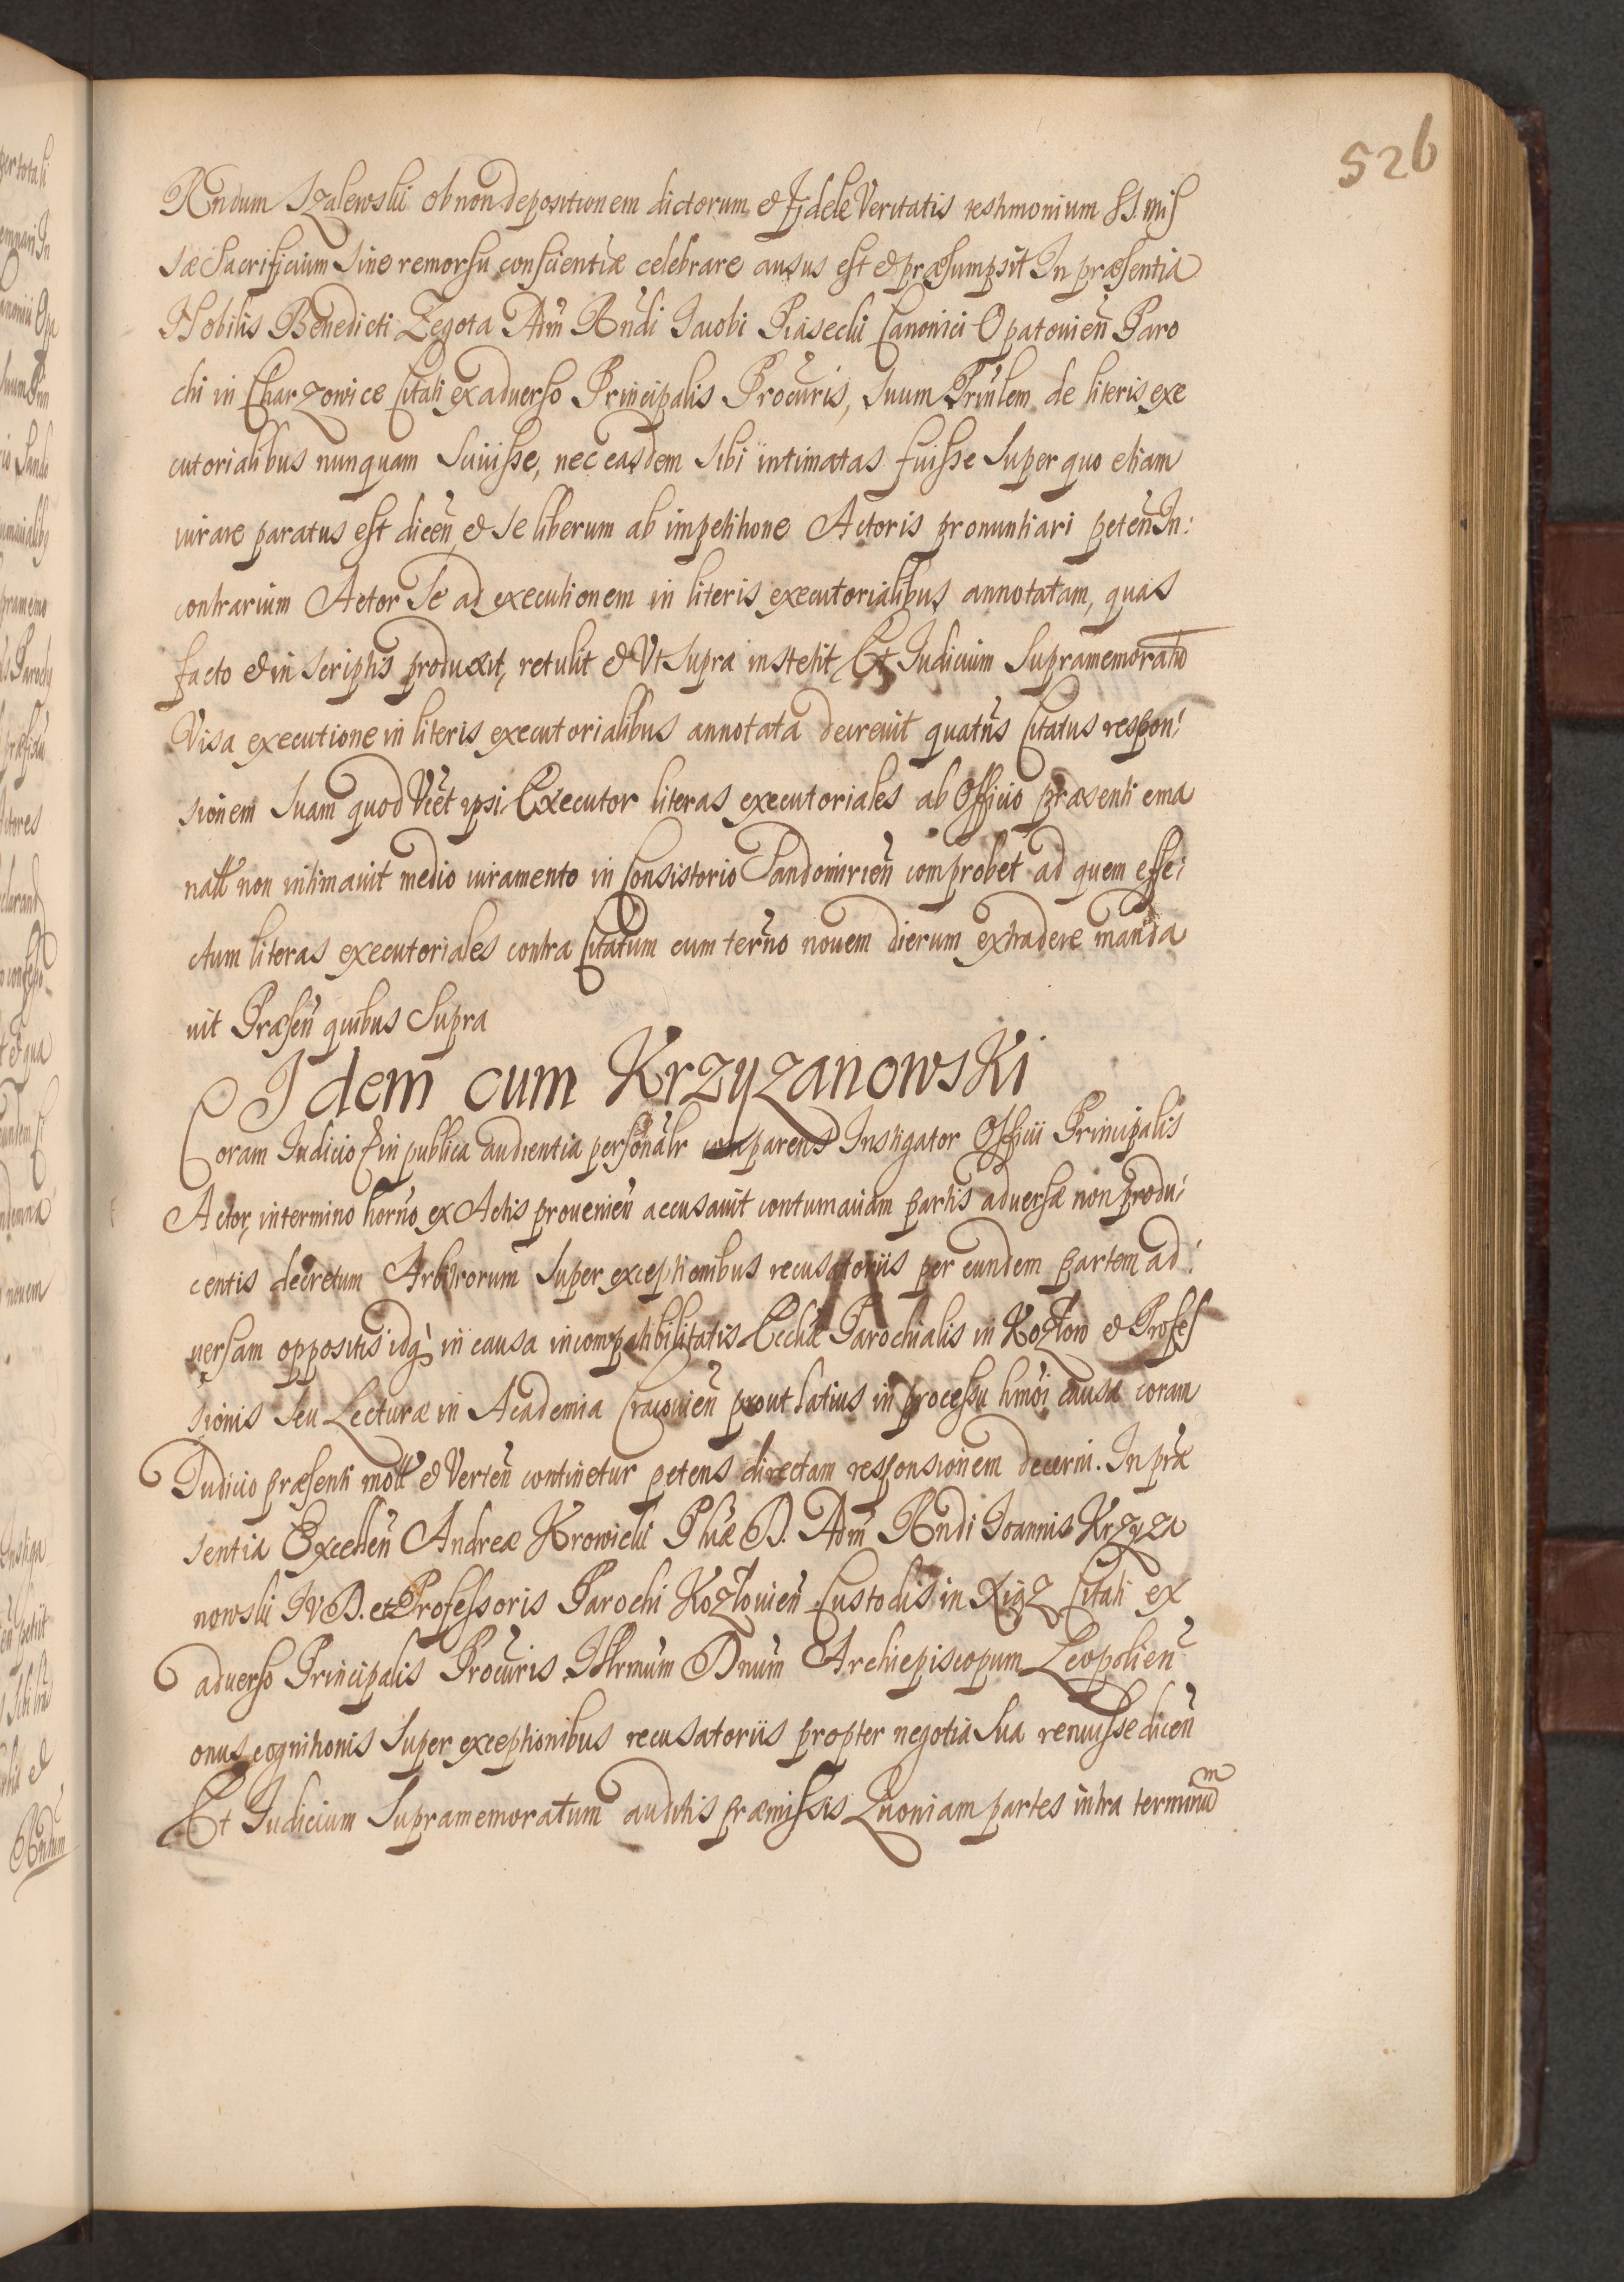 526
Rndum Szalewski ob non depositionem dictorum & fidele Veritatis testimonium SS. Mis
sæ Sacrificium Sine remorsu conscientiæ celebrare ausus est & præsumpsit In præsentia
Nobilis Benedicti Zegota Adm Rndi Jacobi Piasecki Canonici Opatouien Paro
chi in Charzowice Citati ex aduerso Principalis Procuris, Suum Prinlem de literis exe
cutorialibus nunquam Sciuisse, nec easdem Sibi intimatas fuisse Super quo etiam
iurare paratus est dicen, & Se liberum ab impetitione Actoris pronuntiari peten In:
contrarium Actor Se ad executionem in literis executorialibus annotatam, quas
facto & in Scriptis produxit, retulit & Vt Supra institit, Et Judicium Supramemoratu
Visa executione in literis executorialibus annotata decreuit quatns Citatus respon:
sionem Suam quod Vcet ipsi Executor literas executoriales ab Officio præsenti ema
natt non intimauit medio iuramento in Consistorio Sandomirien comprobet ad quem effe:
ctum literas executoriales contra Citatum cum terno nouem dierum extradere manda
uit Præsen quibus Supra
Idem cum Krzyzanowski
Coram Judicio & in publica audientia personalr comparens Instigator Officii Principalis
Actor, in termino horno ex Actis prouenien accusauit contumaciam partis aduersæ non produ:
centis decretum Arbitrorum Super exceptionibus recusatoriis per eundem partem ad:
uersam oppositis idq in causa incompatibilitatis Ecclæ Parochialis in Kozłow & Profes
sionis Seu Lecturæ in Academia Cracouien prout latius in processu hmoi causa coram
Judicio præsenti mott & Verten continetur petens directam responsionem decerni. In præ
sentia Excellen Andreæ Krowicki Phiæ D. Adm Rndi Joannis Krzyza
nowski IVD. et Professoris Parochi Kozłouien Custodis in Xiąz Citati ex
aduerso Principalis Procuris Illrmum Dnum Archiepiscopum Leopolien
onus cognitionis Super exceptionibus recusatoriis propter negotia Sua renuisse dicen
Et Judicium Supramemoratum auditis præmissis Quoniam partes intra terminum
Rndum